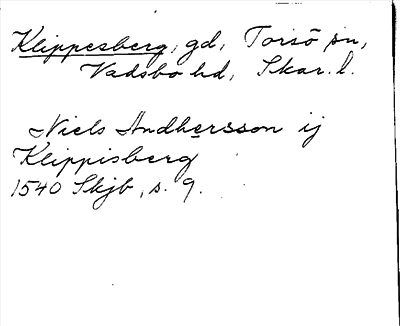 Klippesberg, gd, Torsö sn,
Vadsbo hd, Skar. l.
Niels Andhersson ij
Klippisberg
1540 Skjb, s. 9.